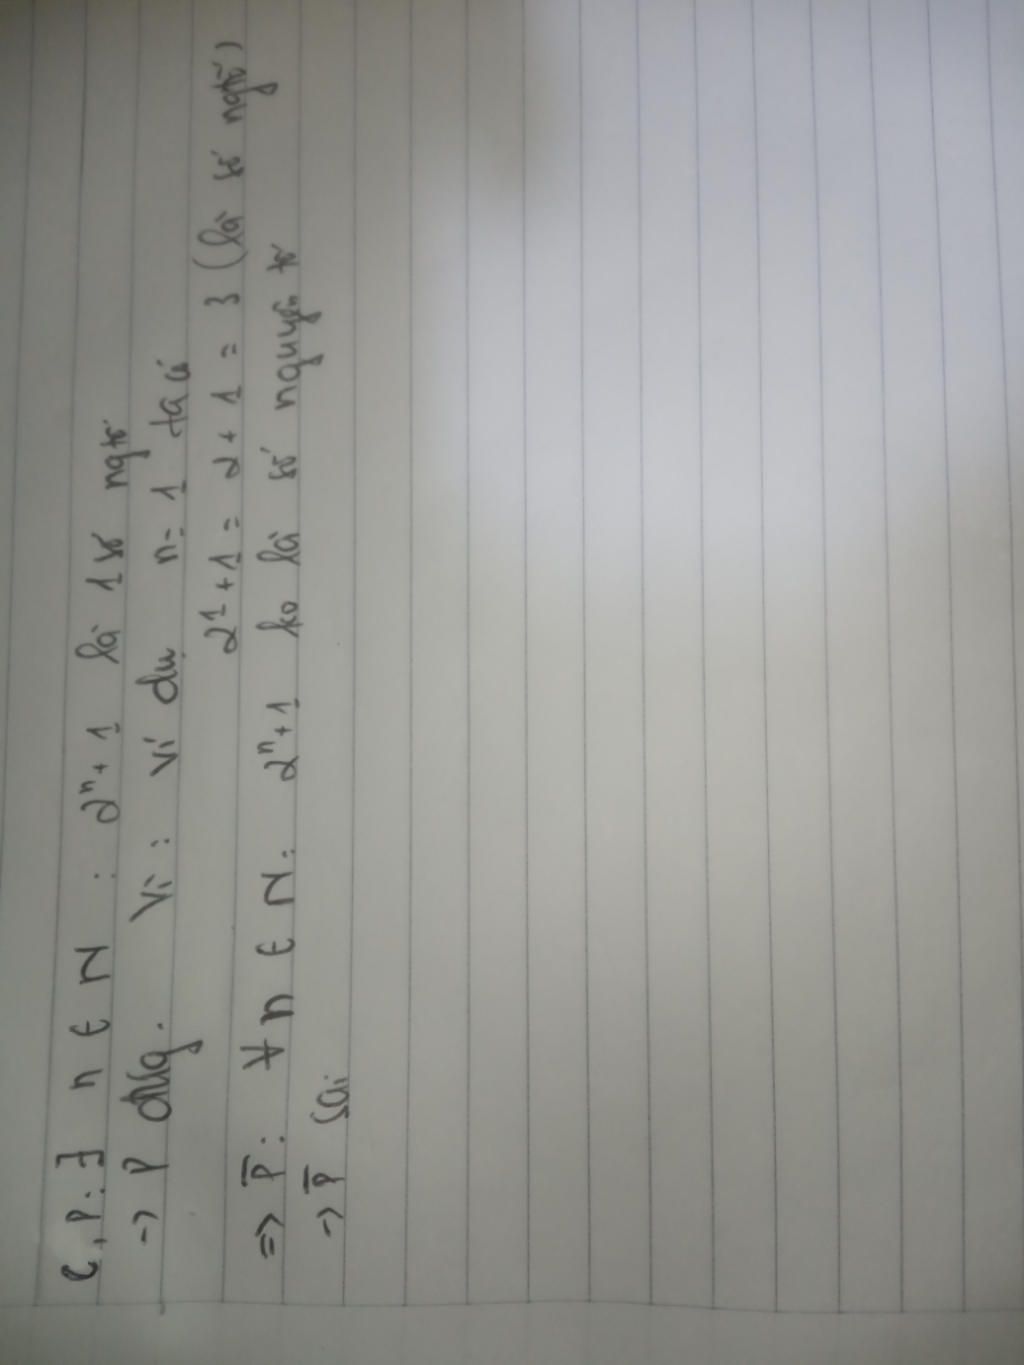 c, P: ∃ n ∈ N : 2ⁿ + 1 là 1 số ngtố
-> P đúg. Vì : ví dụ n = 1 ta có
2¹ + 1 = 2 + 1 = 3 (là số ngtố)
=> P̅ : ∀ n ∈ N : 2ⁿ + 1 ko là số nguyên tố
-> P̅ sai